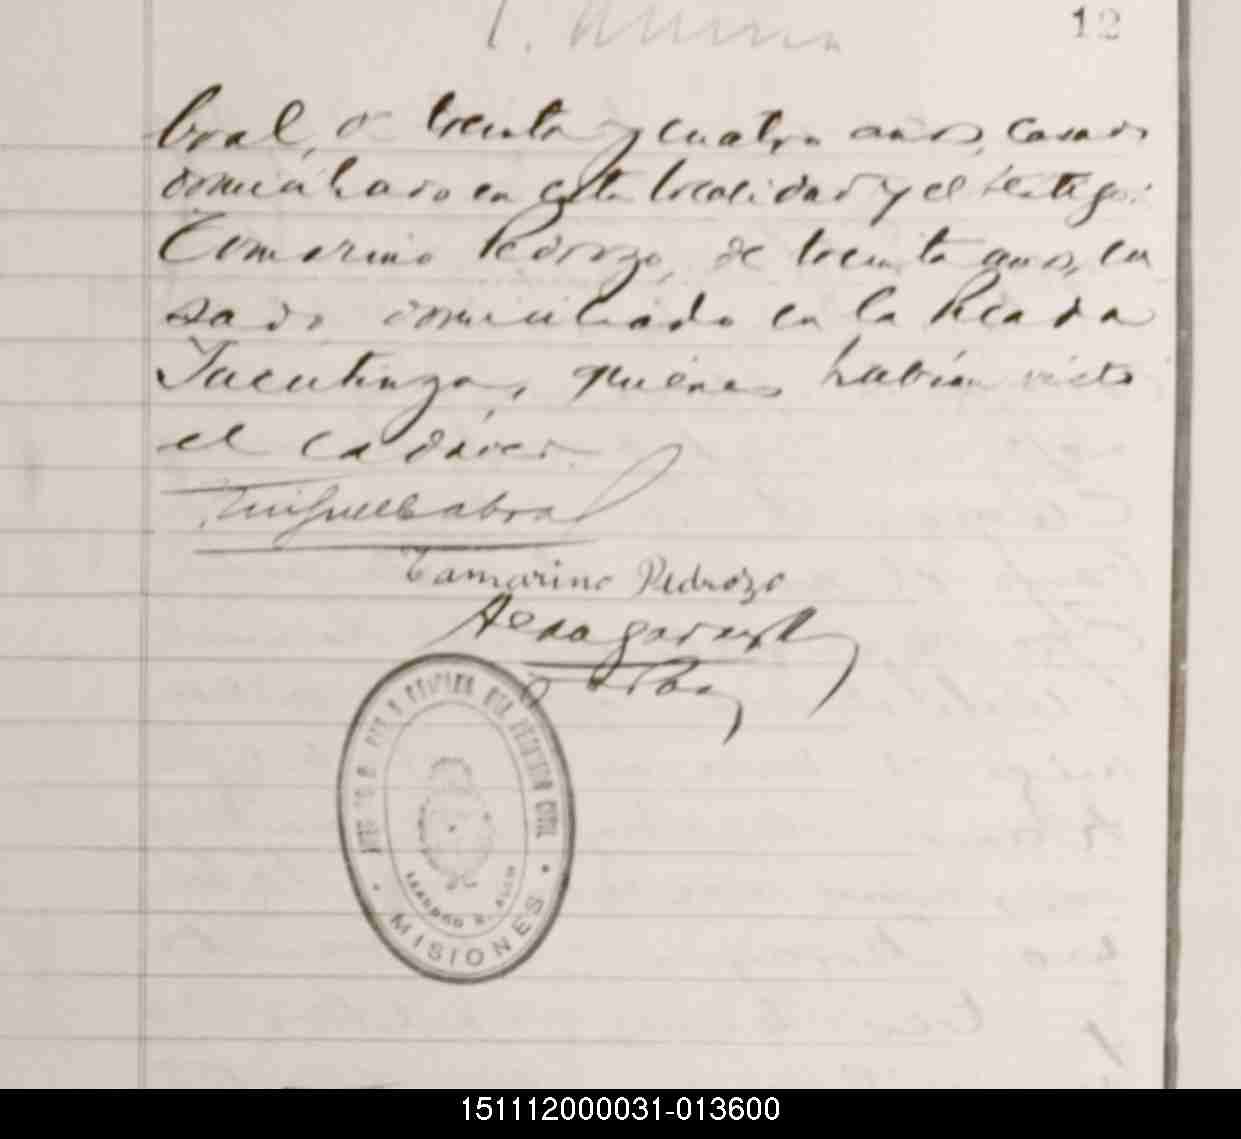 12
bral, de treinta y cuatro años, casado
domiciliado en esta localidad y el testigo:
Tamarino Pedrozo, de treinta años, ca
sado, domiciliado en la Picada
Yacutinga, quienes habían visto
el cadáver.
Miguel Cabral
Tamarino Pedrozo
DEL REGISTRO CIVIL
LEANDRO N. ALEM
MISIONES
151112000031-013600